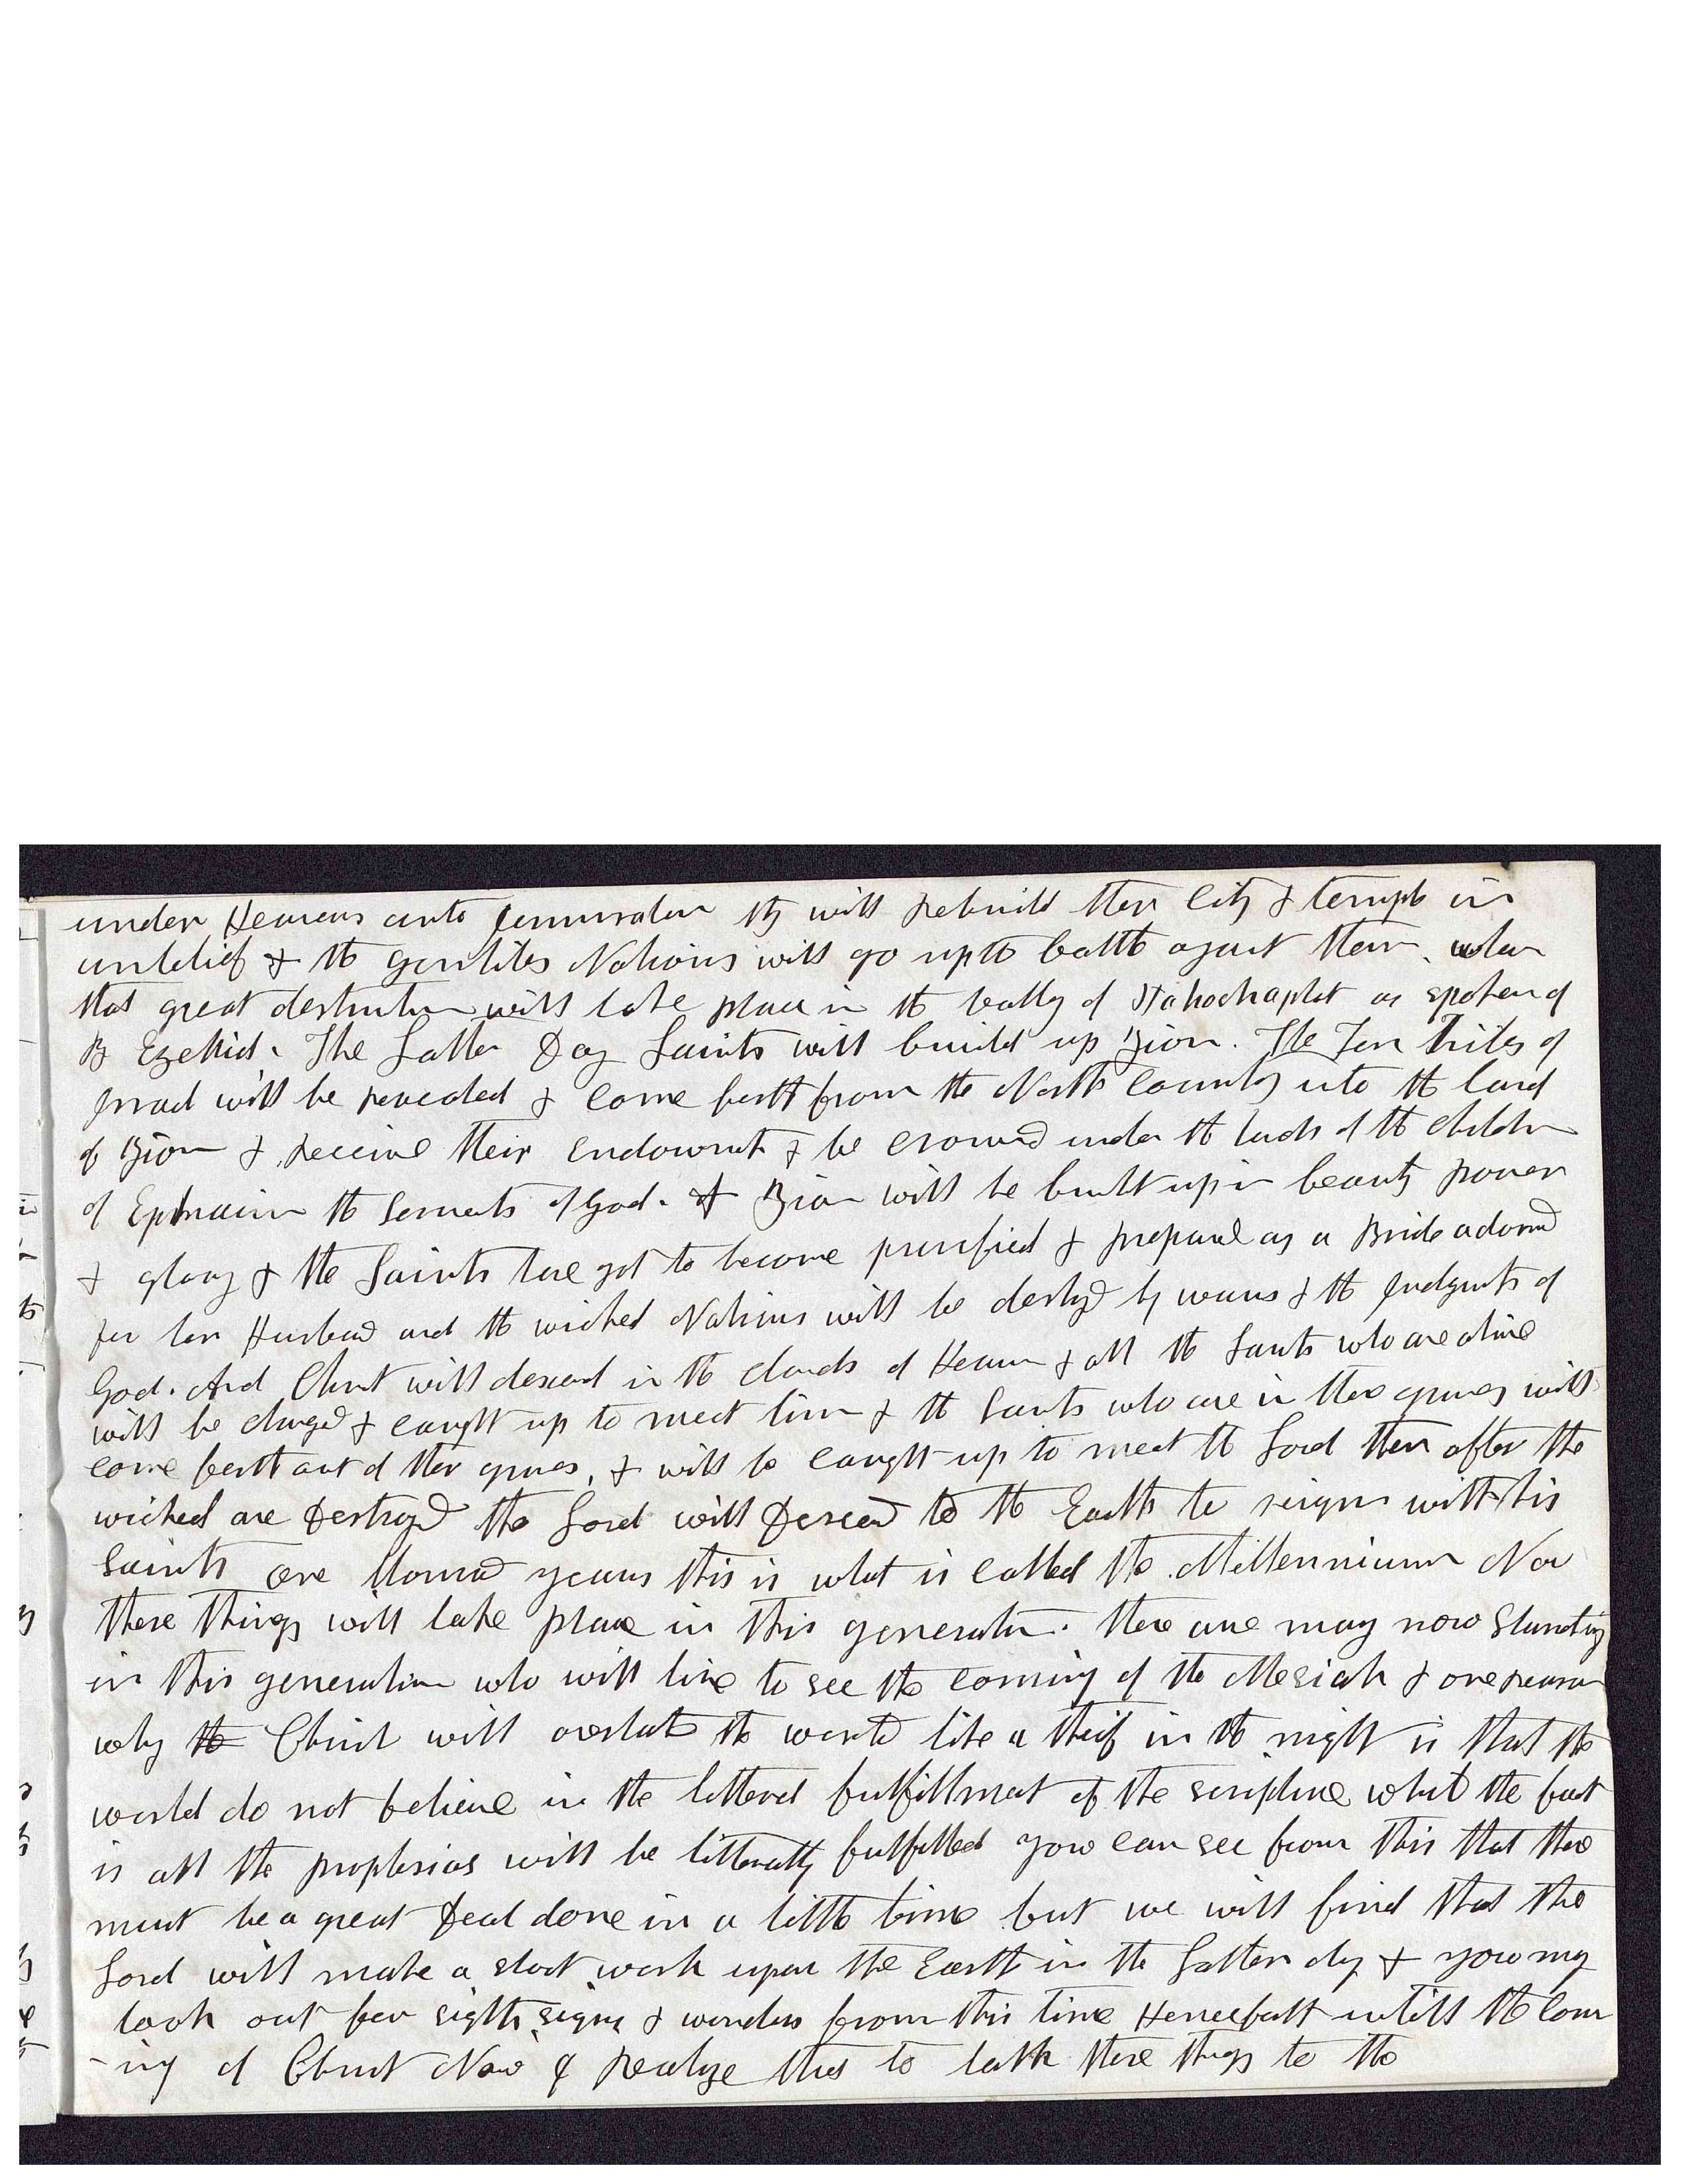 under Heavens unto Jerusalem thy will rebuild ther City & temple in
unbelief & the gentiles Nations will go up to battle against them. when
that great destruction will take place in the vally of Hahoshaphat as spoken of
By Ezekiel. The Latter Day Saints will build up Zion. The Ten Tribes of
Israel will be revealed & come forth from the North Country into the land
of Zion & receive their endowment & be crowned under the hands of the children
of Ephraim the Servants of God. & Zion will be built up in beauty power
& glory & the Saints have got to become purified & prepared as a Bride adorned
for her Husband and the wicked Nations will be destroyed by wars & the Judgments of
God. And Christ will descend in the clouds of Heaven & all the Saints who are alive
will be changed & caught up to meet him & the Saints who are in ther graves will
come forth out of ther graves, & will be caught up to meet the Lord then after the
wicked are Destroyed the Lord will Descend to the Earth to reign with his
Saints one thousand years this is what is called the Millennium Now
these things will take place in this generation. there are many now Standing
in this generation who will live to see the coming of the Mesiah & one reason
why the Christ will overtake the world like a theif in the night is that the
world do not believe in the litteral fulfillment of the scripture what the fact
is all the prophesies will be litterally fulfilled you can see from this that there
must be a great Deal done in a little time but we will find that the
Lord will make a short work upon the Earth in the Latter day & you may
look out for sights signs & wonders from this time Henceforth untill the com
-ing of Christ Now I realize this to talk these things to the